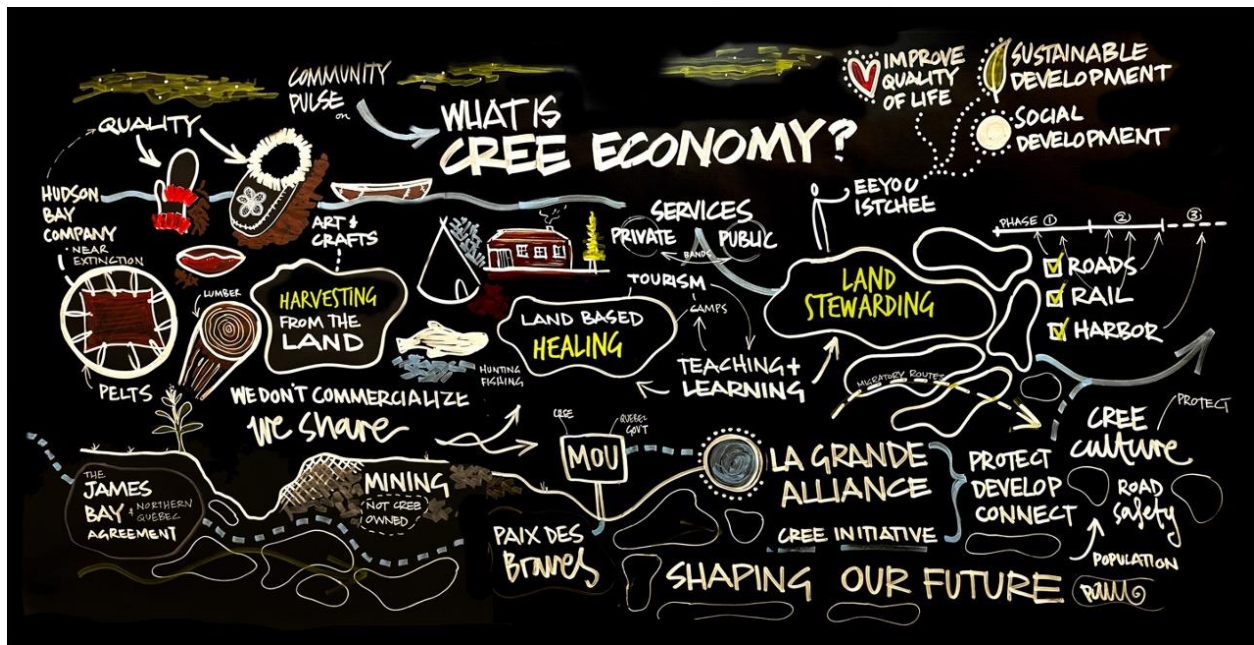 COMMUNITY
PULSE
on
WHAT IS
CREE ECONOMY?
IMPROVE
QUALITY
OF LIFE
SUSTAINABLE
DEVELOPMENT
SOCIAL
DEVELOPMENT
QUALITY
HUDSON
BAY
COMPANY
NEAR
EXTINCTION
PELTS
LUMBER
ART &
CRAFTS
HARVESTING
FROM THE
LAND
WE DON'T COMMERCIALIZE
We share
HUNTING
FISHING
SERVICES
PRIVATE
PUBLIC
BANDS
TOURISM
CAMPS
LAND BASED
HEALING
TEACHING +
LEARNING
EEYOU
ISTCHEE
LAND
STEWARDING
PHASE 1
2
3
ROADS
RAIL
HARBOR
MIGRATORY ROUTES
PROTECT
CREE
culture
ROAD
Safety
POPULATION
THE
JAMES
BAY +
NORTHERN
QUEBEC
AGREEMENT
MINING
NOT CREE
OWNED
CREE
QUEBEC
GOVT
MOU
PAIX DES
Braves
LA GRANDE
ALLIANCE
CREE INITIATIVE
PROTECT
DEVELOP
CONNECT
SHAPING OUR FUTURE